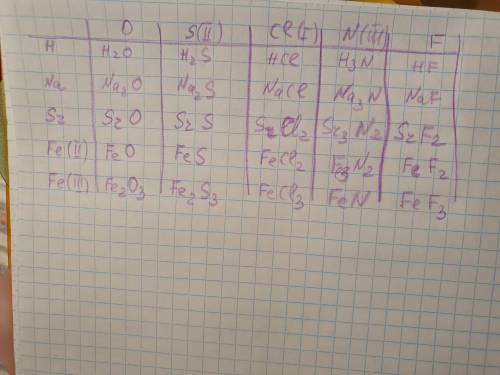 O S(II) Cl(I) N(III) F
H H₂O H₂S HCl H₃N HF
Na Na₂O Na₂S NaCl Na₃N NaF
Sr SrO SrS SrCl₂ Sr₃N₂ SrF₂
Fe(II) FeO FeS FeCl₂ Fe₃N₂ FeF₂
Fe(III) Fe₂O₃ Fe₂S₃ FeCl₃ FeN FeF₃